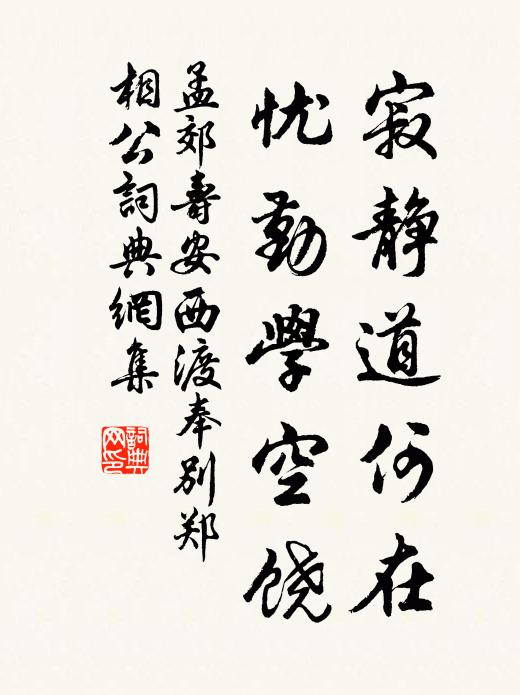 寂静道何在
忧勤學空饶
孟郊壽安西渡奉别郑
相公詞典網集
詞典
网印